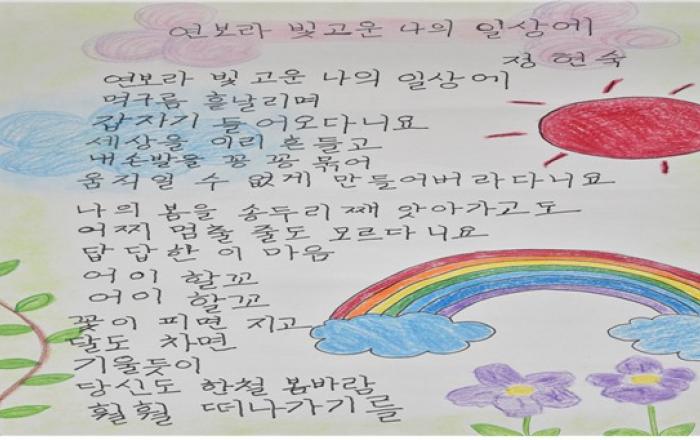 연보라 빛고운 나의 일상에
정현숙
연보라 빛 고운 나의 일상에
먹구름 흩날리며
갑자기 들어오다니요
세상을 이리 흔들고
내손발을 꽁꽁 묶어
움직일 수 없게 만들어버리다니요
나의 봄을 송두리째 앗아가고도
어찌 멈출 줄도 모르다니요
답답한 이 마음
어이 할꼬
어이 할꼬
꽃이 피면 지고
달도 차면
기울듯이
당신도 한철 봄바람
훨훨 떠나가기를